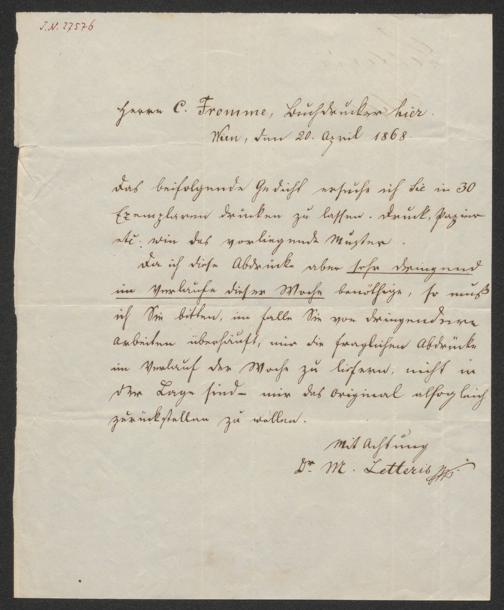 J.N. 27576
Herrn C. Fromme, Buchdrucker hier.
Wien, den 20. April 1868.
Das beifolgende Gedicht ersuche ich Sie in 30
Exemplaren drucken zu lassen. Druck, Papier
etc. wie das vorliegende Muster.
Da ich diese Abdrücke aber sehr dringend
im Verlaufe dieser Woche benöthige, so muß
ich Sie bitten, im Falle Sie von dringendern
Arbeiten überhäuft, mir die fraglichen Abdrücke
im Verlauf der Woche zu liefern, nicht in
der Lage sind – mir das Original alsogleich
zurückstellen zu wollen.
Mit Achtung
Dr. M. Letteris